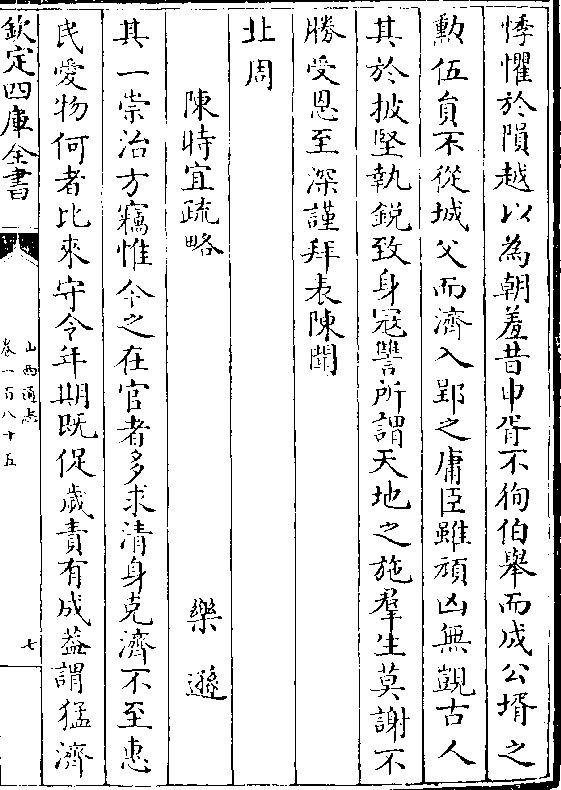 悸懼於隕越以為朝羞昔申胥不徇伯舉而成公壻之
勲伍貟不從城父而濟入郢之庸臣雖頑凶無覬古人
其於披堅執鋭致身冦讐所謂天地之施羣生莫謝不
勝受恩至深謹拜表陳聞
北周
陳時宜疏略
樂遜
其一崇治方竊惟今之在官者多求清身克濟不至惠
民愛物何者比來守令年期既促歲責有成葢謂猛濟
欽定四庫全書
山西通志
卷一百八十五
七